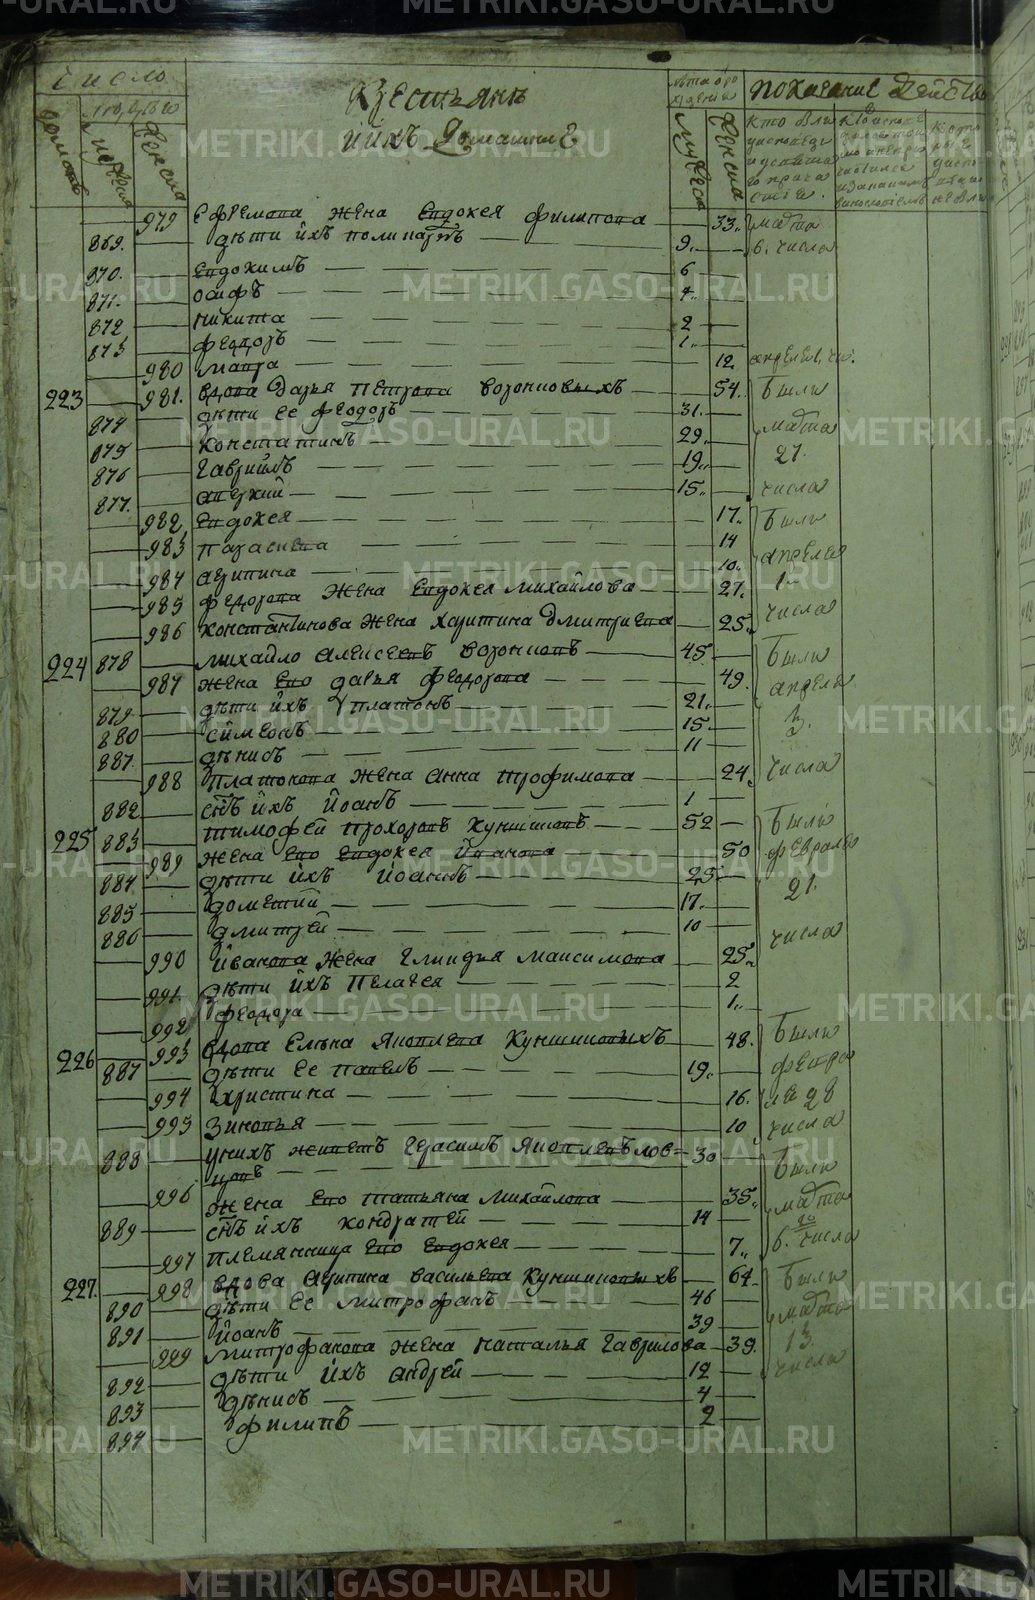 число
Крестьянѣ
и ихъ домашние
лѣта от рождения
показание действа
домовъ
людей
мужеска
женска
мужеска
женска
кто были у исповеди и у святаго причастие
979 Ефремова жена Евдокея Филипова 33. марта
869. дѣти ихъ Поликарпъ 9. 6. числа
870. Евдокимъ 6
871. Осифъ 4.
872 Никита 2
873 Феодоръ 1.
980 Марфа 12. апреля 1. чи.
223 981. вдова Дарья Петрова Воронцовыхъ 54. были
874 дѣти ее Феодоръ 31. марта
875 Константинъ 29. 27.
876 Гаврiилъ 19. числа
877. Аверкий 15.
982 Евдокея 17. были
983 Параскева 14 апреля
984 Агрипина 10. 1
985 Федорова жена Евдокея Михайлова 27. числа
986 Константинова жена Харитина Дмитриева 25.
224 878 Михайло Алексеевъ Воронцовъ 45 были
987 жена ево Дарья Феодорова 49. апреля
879 дѣти ихъ Платонъ 21. 3.
880 Симеонъ 15. числа
881. Денисъ 11
988 Платонова жена Анна Трофимова 24.
882 сынъ ихъ Иоанъ 1
225 883 Тимофей Прохоровъ Куншиновъ 52 были
989 жена ево Евдокея Иванова 50 февраля
884. дѣти ихъ Иоаннъ 25. 21.
885 Дометий 17. числа
886 Дмитрей 10
990 Иванова жена Гликирья Максимова 25.
991. дѣти ихъ Пелагея 2
992 Феодора 1.
226 993 вдова Елена Яковлева Куншиновыхъ 48. были
887 дѣти ее Павелъ 19. февра
994 Христина 16. ля 28
995 Зиновья 10 числа
888 у нихъ живетъ Герасимъ Яковлевъ Лов- 30 были
цовъ
996 жена ево Татьяна Михайлова 35. марта
889 сынъ ихъ Кондратей 14 6. числа
997 племянница ево Евдокея 7.
227. 998 вдова Агрипина Васильева Куншиновыхъ 64. были
890 дѣти ее Митрофанъ 46 марта
891 Иоанъ 39 13
999 Митрофанова жена Наталья Гаврилова 39. числа
892 дѣти ихъ Андрей 12
893 Денисъ 4
894 Филипъ 2
METRIKI.GASO-URAL.RU